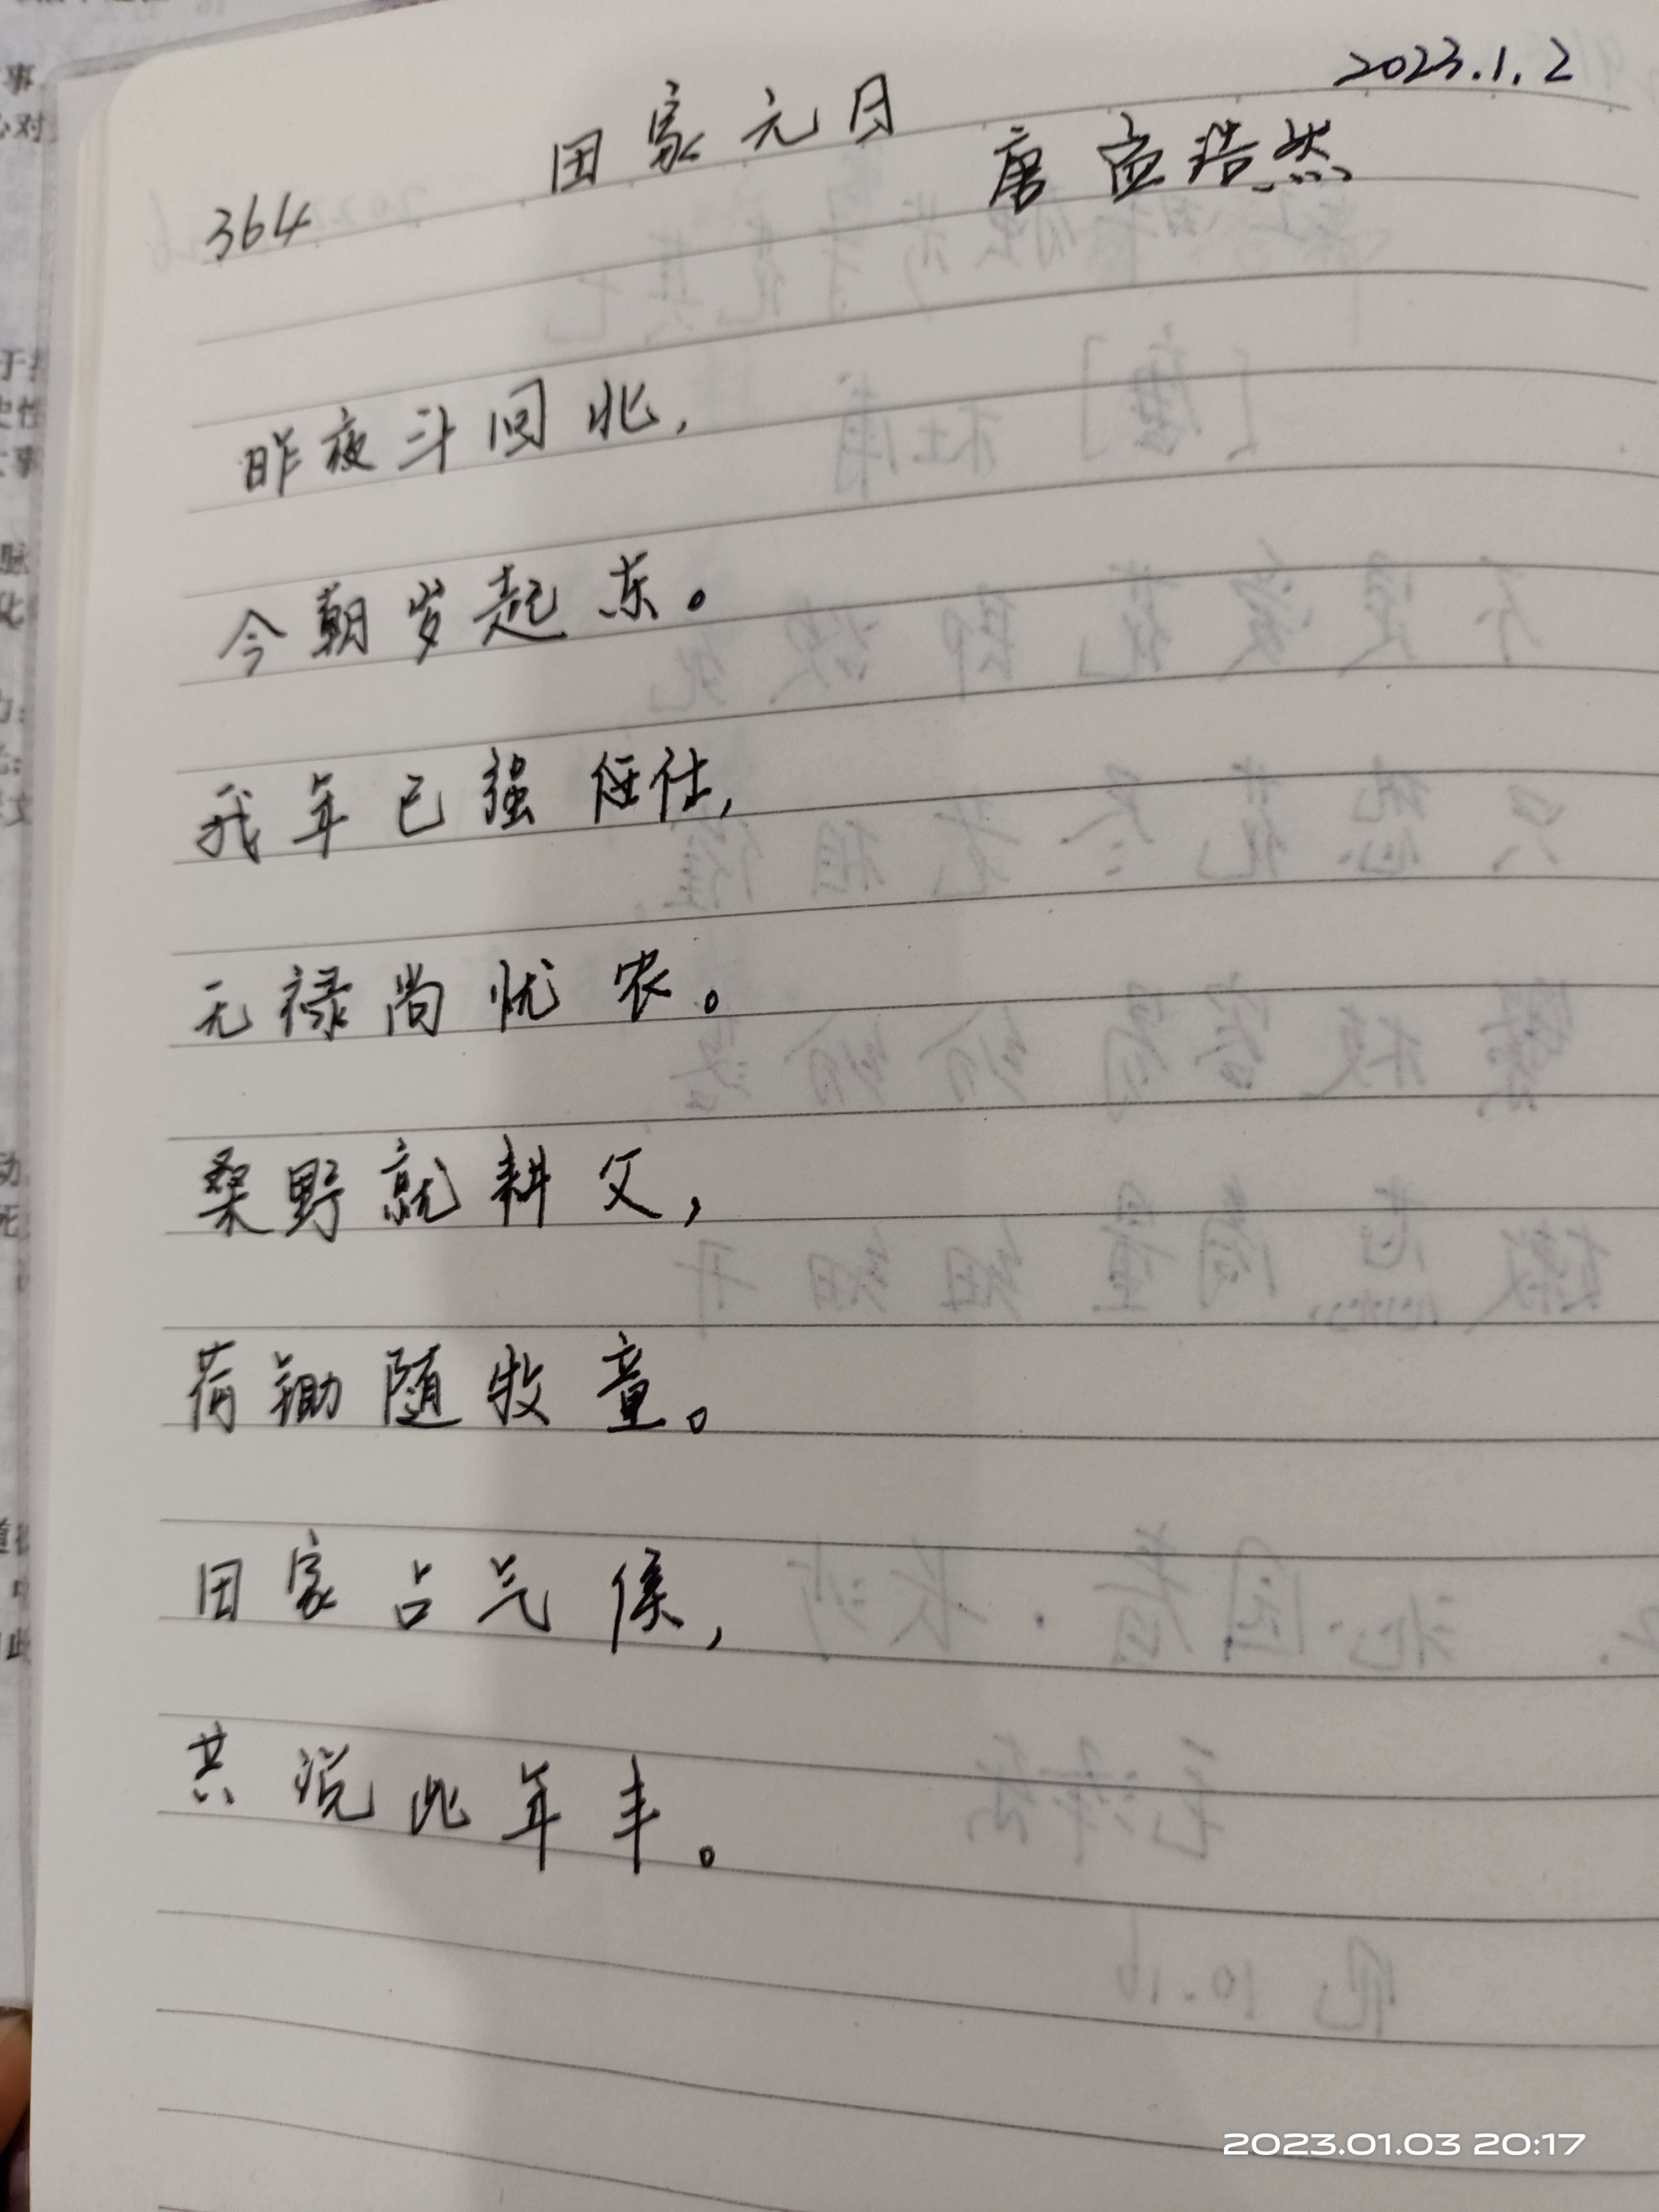 2023.1.2
田家元日
唐 孟浩然
364
昨夜斗回北，
今朝岁起东。
我年已强任仕，
无禄尚忧农。
桑野就耕父，
荷锄随牧童。
田家占气候，
共说此年丰。
2023.01.03 20:17